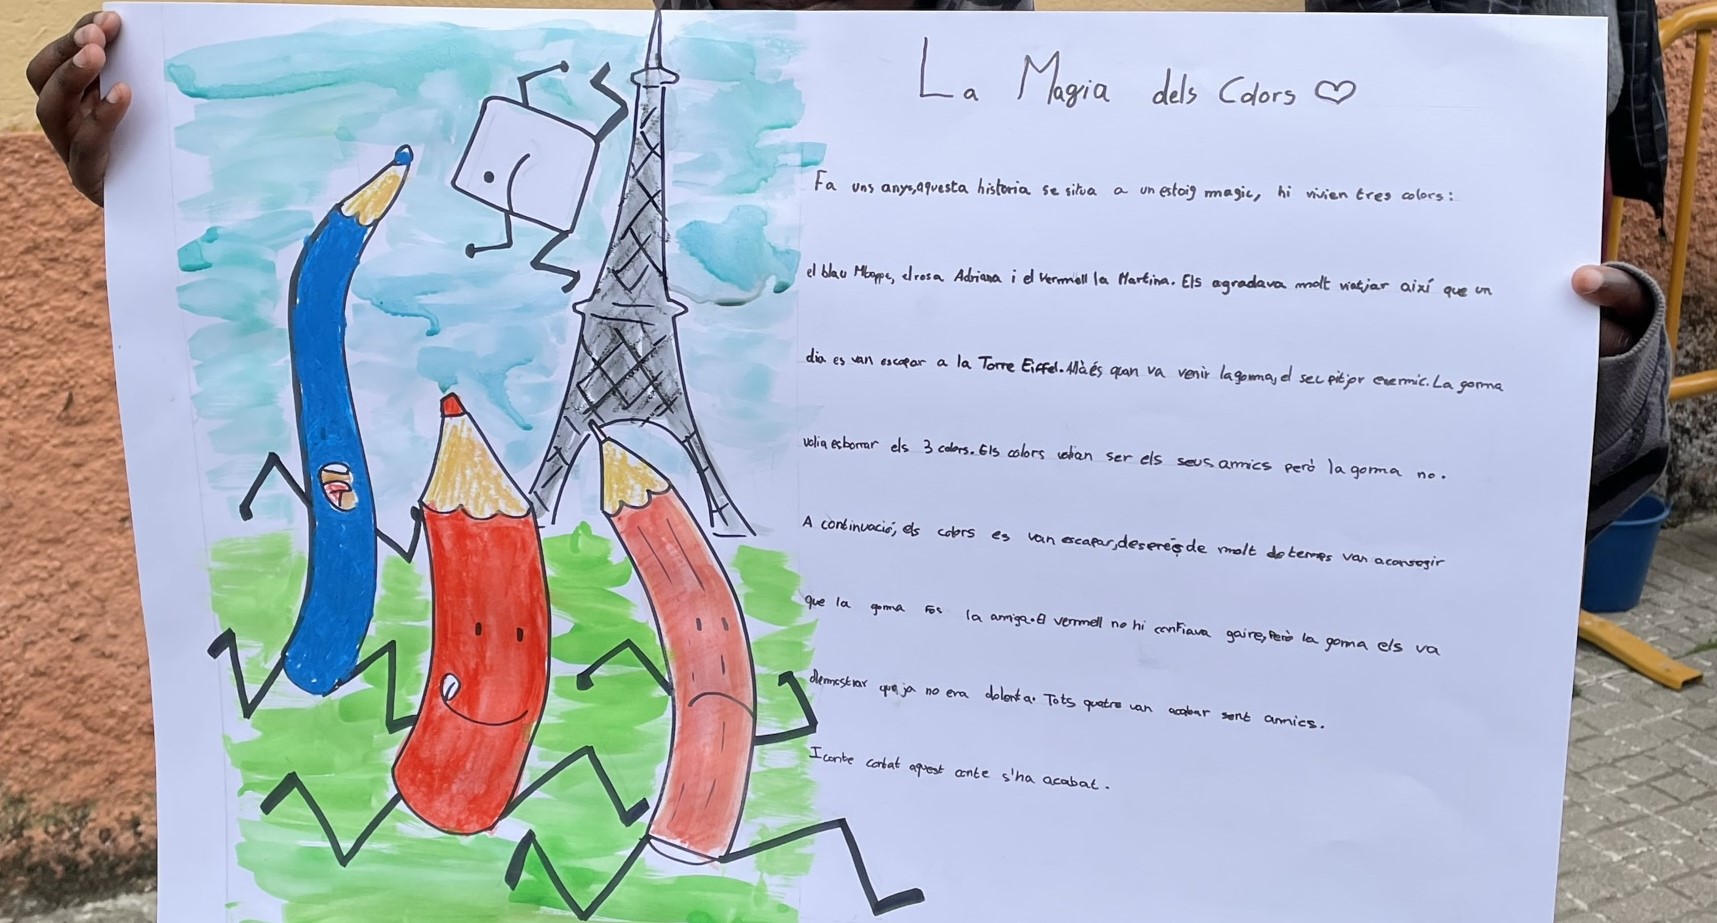 La Magia dels Colors
Fa uns anys,aquesta historia se situa a un estoig magic, hi vivien tres colors:
el blau Mbappe, el rosa Adriana i el vermell la Martina. Els agradava molt viatjar així que un
dia es van escapar a la Torre Eiffel. Allà és quan va venir la goma, el seu pitjor enemic. La goma
volia esborrar els 3 colors. Els colors volian ser els seus amics però la goma no.
A continuació, els colors es van escapar, de molt de temps van aconsegir
que la goma fos la amiga. El vermell no hi confiava gaire, però la goma els va
demostrar que ja no era dolenta. Tots quatre van acabar sent amics.
I conte contat aquest conte s'ha acabat.